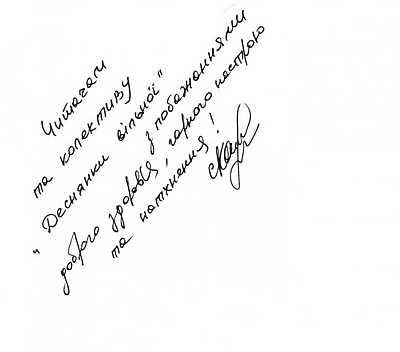 Читачам
та колективу
"Деснянки вільної"
з побажаннями
доброго здоров'я, гарного настрою
та натхнення!